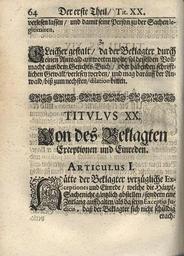 64 Der erste Theil / Tit. XX.
verlesen lassen / und damit seine Person zu der Sachen le-
gitimiren.
3.
Gleicher gestalt / da der Beklagter durch
einen Anwald antworten wolte / sol desselben Voll-
macht aus dem Gerichts-Buch / oder habenden schrifft-
lichen Gewalt verlesen werden / und mag darauf der An-
wald / biß zum
TITVLVS XX.
Von des Beklagten
Exceptionen und Einreden.
ARTICULUS I.
Hätte der Beklagter verzügliche Ex-
ceptiones und Einrede / welche die Haupt-
Sache nicht gäntzlich abstellen / sondern eine
Zeitlang aufhalten / als da seyn Exceptio fo-
daß der Beklagter sich nicht schuldig
erach-